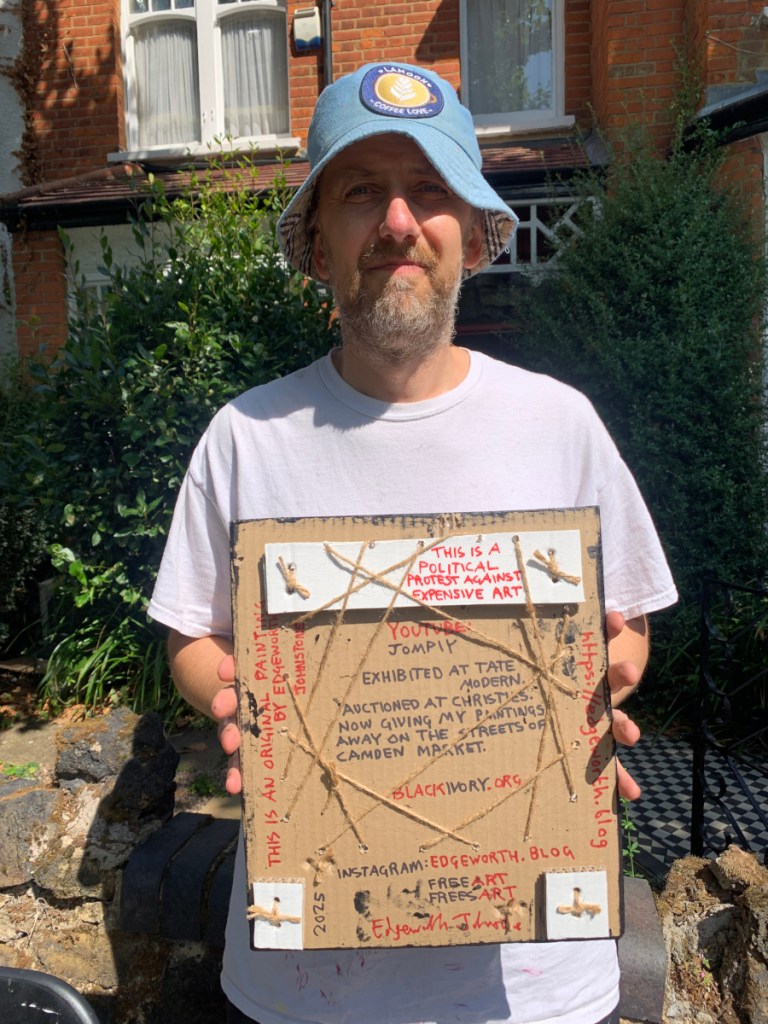 LAMOON
COFFEE LOVE
THIS IS A
POLITICAL
PROTEST AGAINST
EXPENSIVE ART
THIS IS AN ORIGINAL PAINTING
BY EDGEWORTH
JOHNSTONE
YOUTUBE:
JOMPIY
EXHIBITED AT TATE
MODERN.
AUCTIONED AT CHRISTIES.
NOW GIVING MY PAINTINGS
AWAY ON THE STREETS OF
CAMDEN MARKET.
BLACKIVORY.ORG
https://edgeworth.blog
INSTAGRAM: EDGEWORTH.BLOG
FREE ART
FREES ART
2025
Edgeworth Johnstone